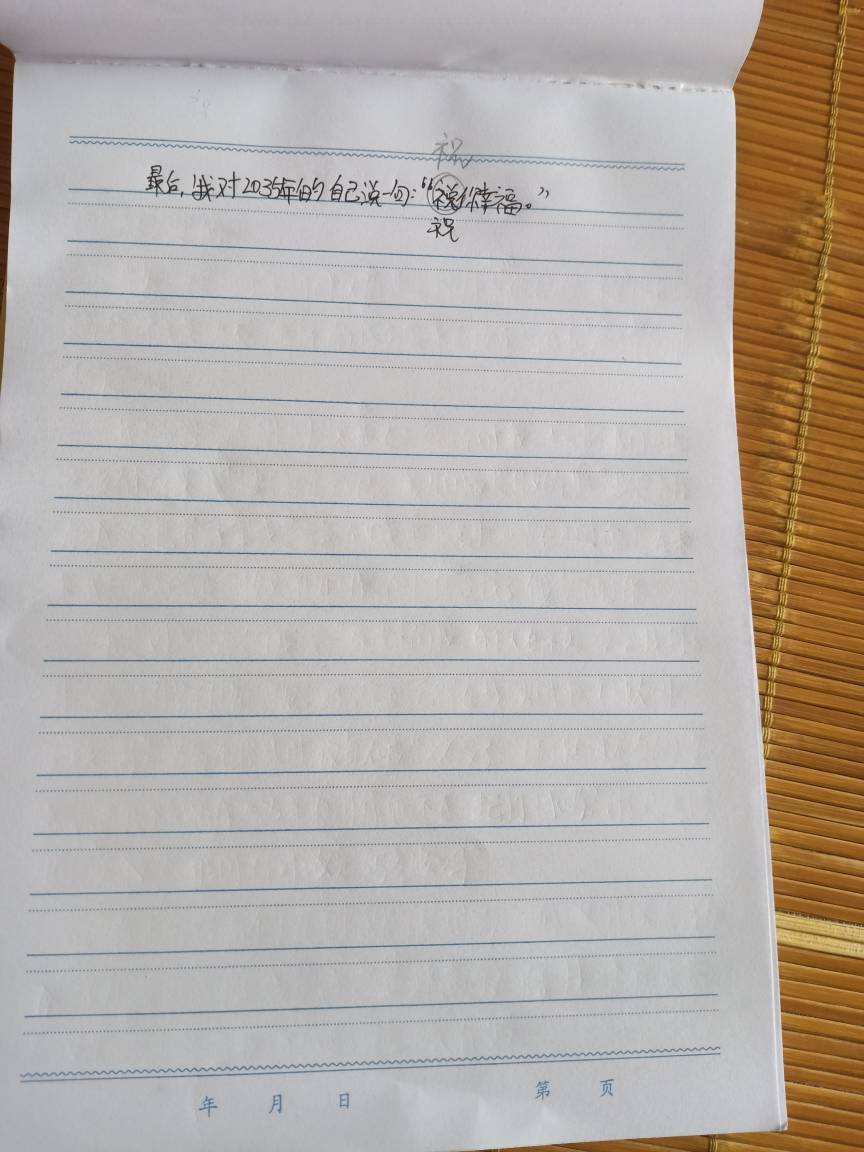 祝
最后，我对2035年的自己说一句：“祝你幸福。”
祝
年 月 日 第 页